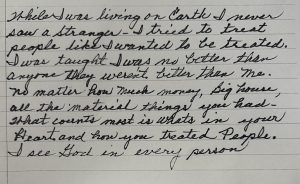 While I was living on Earth I never
saw a stranger - I tried to treat
people like I wanted to be treated.
I was taught I was no better than
anyone they weren't better than me.
no matter how much money, Big house,
all the material things you had -
What counts most is whats in your
Heart and how you treated People.
I see God in every person